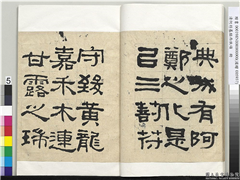 典城有阿
鄭之化是
㠯三符
守致黃龍
嘉禾木連
甘露之瑞
5